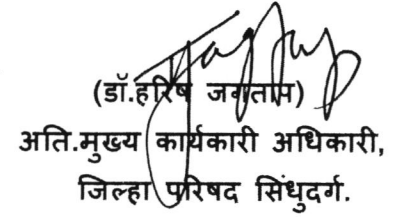 (डॉ.हरिष जगताप)
अति.मुख्य कार्यकारी अधिकारी,
जिल्हा परिषद सिंधुदुर्ग.